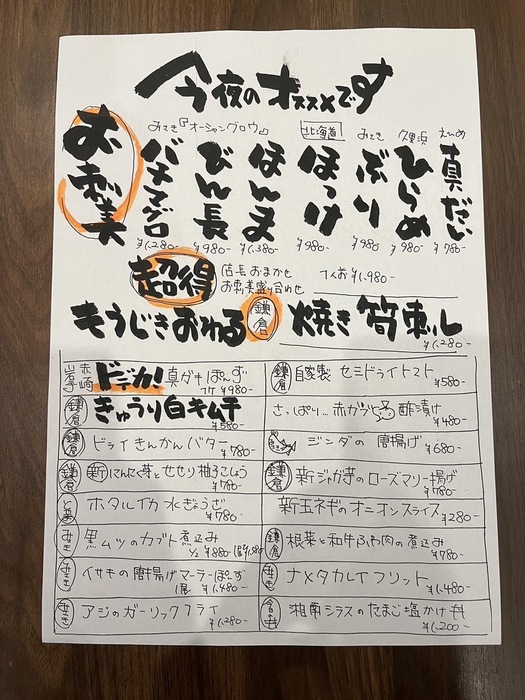 今夜のオススメです
お刺美
えひめ 真だい ¥780-
久里浜 ひらめ ¥980-
みさき ぶり ¥980-
北海道 ほっけ ¥980-
みさき『オーシャングロウ』
ほんま ¥1,380-
びん長 ¥980-
バチマグロ ¥1,280-
超得 店長おまかせ お刺美盛り合わせ 1人お ¥1,980-
もうじきおわる 鎌倉 焼き筍刺し ¥1,280-
岩手 赤崎 ドデカ! 真ガキぽんず 1ケ ¥980-
鎌倉 自家製 セミドライトマト ¥580-
鎌倉 きゅうり白キムチ ¥580-
さっぱり… 赤ガブと 酢漬け ¥480-
鎌倉 ドライきんかんバター ¥780-
ジンダの唐揚げ ¥680-
鎌倉 新にんにく芽とせせり柚子こしょう ¥780-
鎌倉 新ジャガ芋のローズマリー揚げ ¥780-
ホタルイカ水ぎょうざ ¥780-
新玉ネギのオニオンスライス ¥280-
みさき 黒ムツのカブト煮込み ½ ¥880-
鎌倉 根菜と和牛ふわ肉の煮込み ¥780-
みさき イサキの唐揚げマーラーぽんず ¥1,480-
みさき ナメタカレイフリット ¥1,480-
みさき アジのガーリックフライ ¥1,280-
湘南シラスのたまご塩かけ丼 ¥1,200-